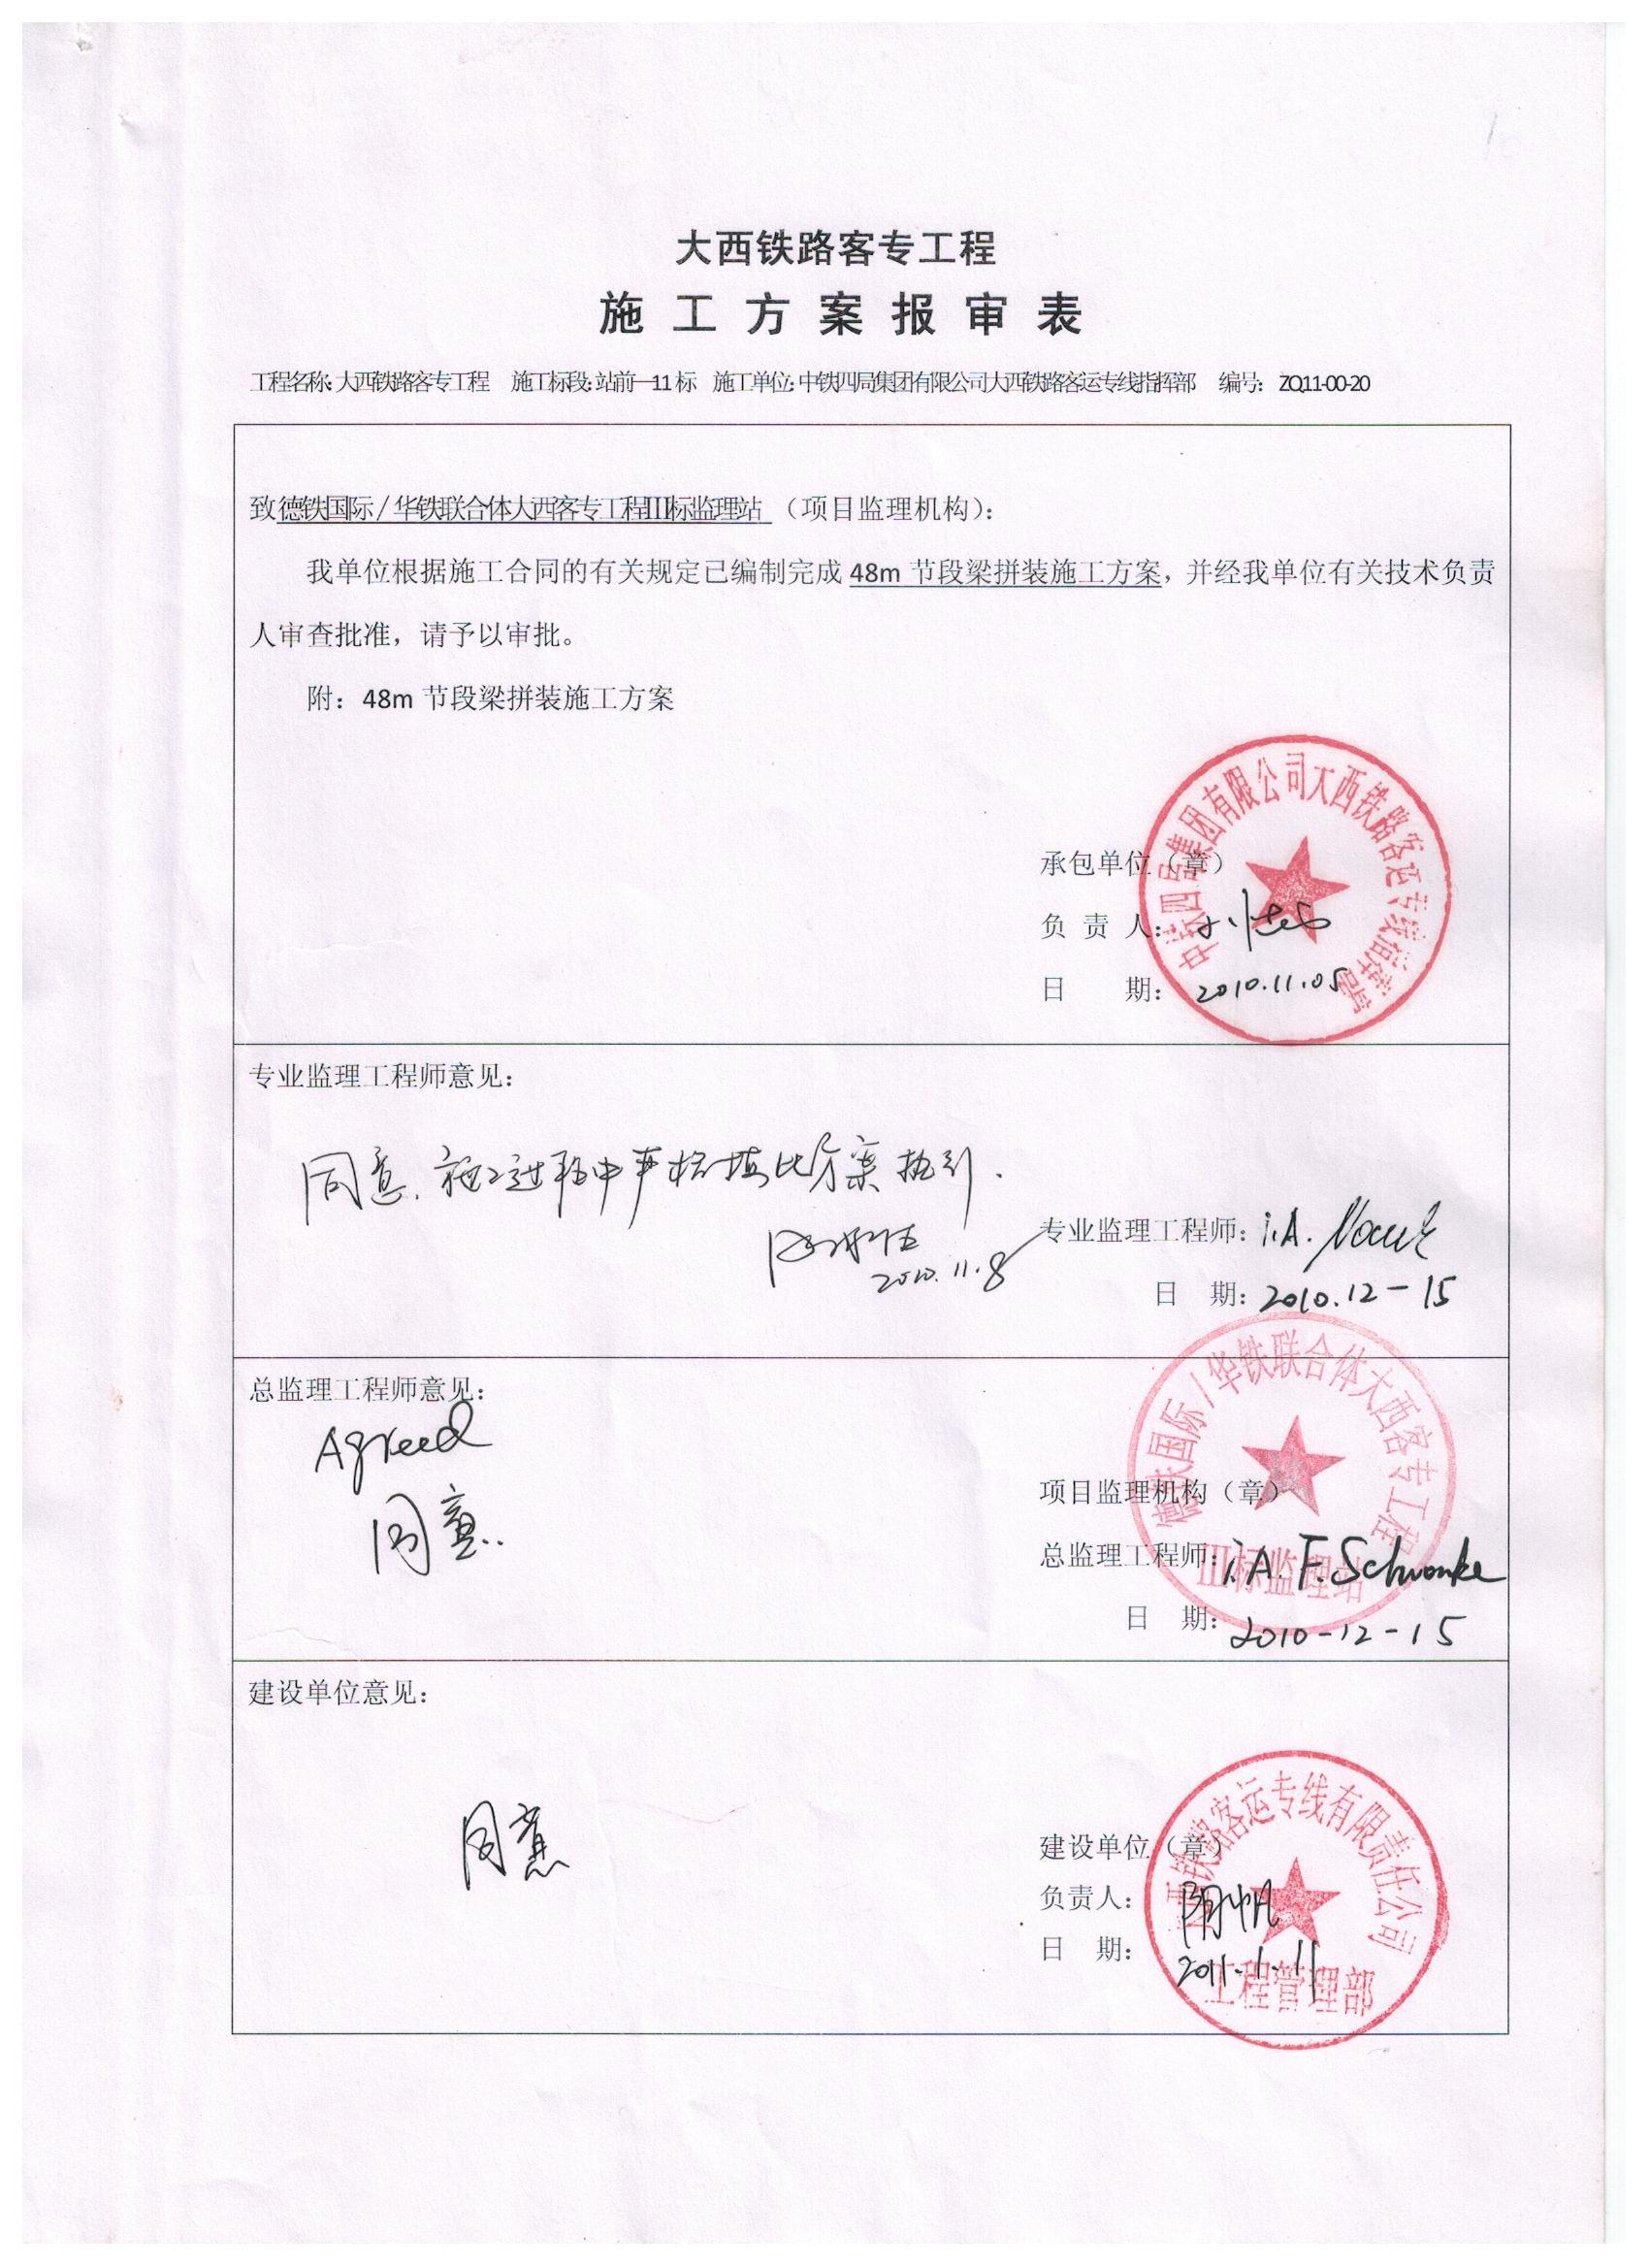 大西铁路客专工程
施工方案报审表
工程名称:大西铁路客专工程 施工标段:站前—11标 施工单位:中铁四局集团有限公司大西铁路客运专线指挥部 编号：ZQ11-00-20
致德铁国际/华铁联合体大西客专工程III标监理站（项目监理机构）：
我单位根据施工合同的有关规定已编制完成48m 节段梁拼装施工方案，并经我单位有关技术负责
人审查批准，请予以审批。
附：48m 节段梁拼装施工方案
中铁四局集团有限公司大西铁路客运专线指挥部
承包单位（章）
负 责 人：
日 期：2010.11.05
专业监理工程师意见：
同意.施工过程中严格按此方案执行.
2010.11.8
专业监理工程师：i.A.
日 期：2010.12-15
总监理工程师意见：
Agreed
同意.
德铁国际/华铁联合体大西客专工程
III标监理站
项目监理机构（章）
总监理工程师：i.A. F. Schwonke
日 期：2010-12-15
建设单位意见：
同意
西铁路客运专线有限责任公司
工程管理部
建设单位（章）
负责人：
日 期：2011.1.11